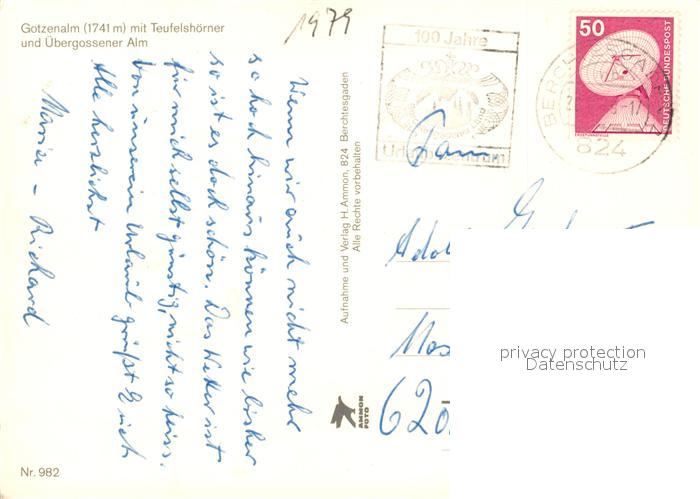 Gotzenalm (1741 m) mit Teufelshörner
und Übergossener Alm
1979
Wenn wir auch nicht mehr
so hoch hinaus können wie bisher
so ist es doch schön. Das Wetter ist
für mich selbst günstig, nicht so heiss.
Von unserem Urlaub grüßt Euch
Alle herzlichst
Marie - Richard
Nr. 982
Aufnahme und Verlag H. Ammon, 824 Berchtesgaden
Alle Rechte vorbehalten
AMMON
FOTO
100 Jahre
50
DEUTSCHE BUNDESPOST
ERDEFUNKSTELLE
824
Fam.
620
privacy protection
Datenschutz